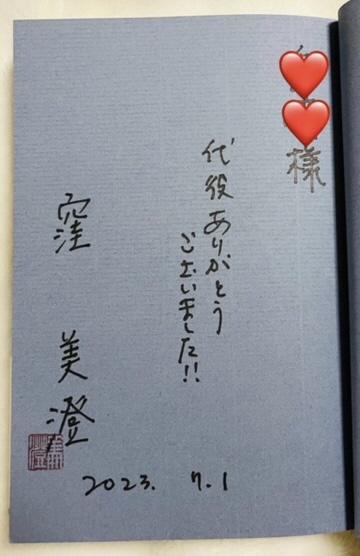 様
代役ありがとう
ございました!!
窪 美澄
2023. 7.1